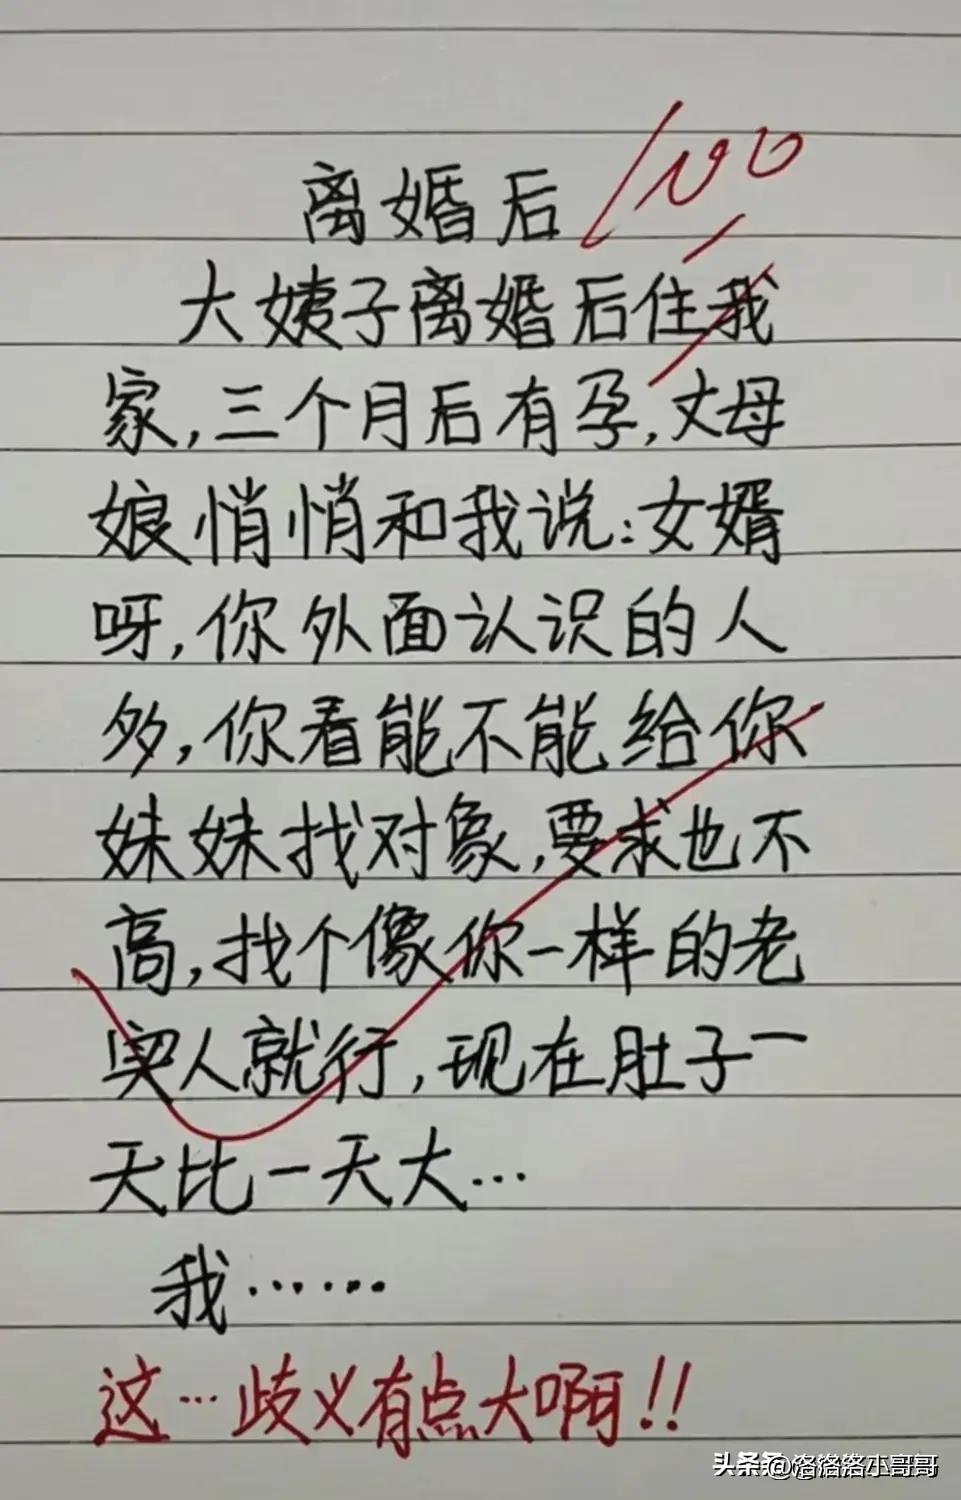 离婚后
100
大姨子离婚后住我
家,三个月后有孕,丈母
娘悄悄和我说:女婿
呀,你外面认识的人
多,你看能不能给你
妹妹找对象,要求也不
高,找个像你一样的老
实人就行,现在肚子一
天比一天大…
我……
这…歧义有点大啊!!
头条 @洛洛洛小哥哥